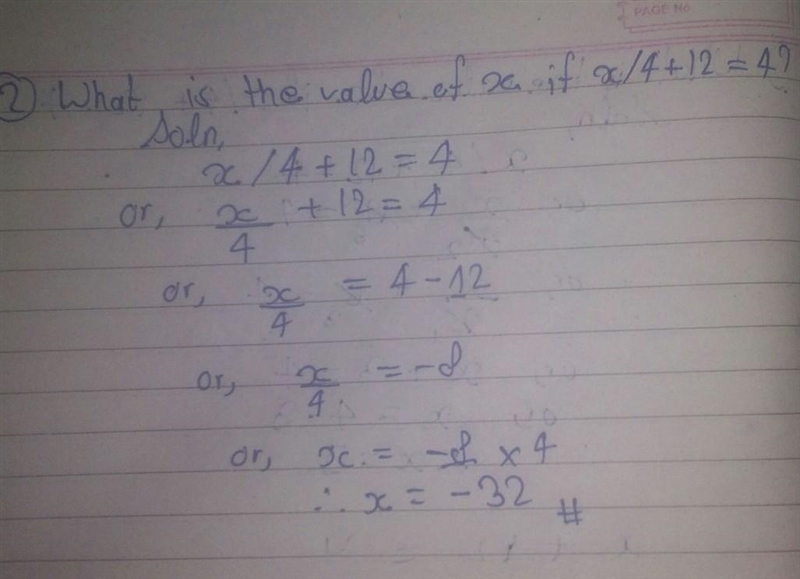 PAGE No
2) What is the value of x if x/4+12=4?
Soln,
x/4+12=4
or, x/4 +12=4
or, x/4 = 4-12
or, x/4 = -8
or, x = -8 × 4
∴ x = -32 #